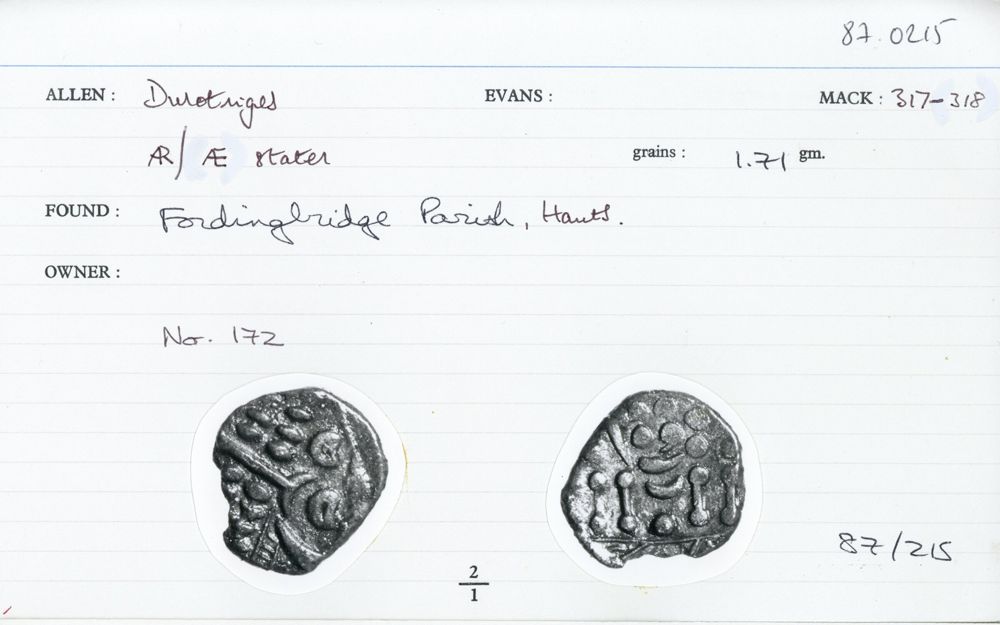 87.0215
ALLEN : Durotriges EVANS : MACK : 317-318
AR/ Æ stater grains : 1.71 gm.
FOUND : Fordingbridge Parish, Hants.
OWNER :
No. 172
87/215
2
1